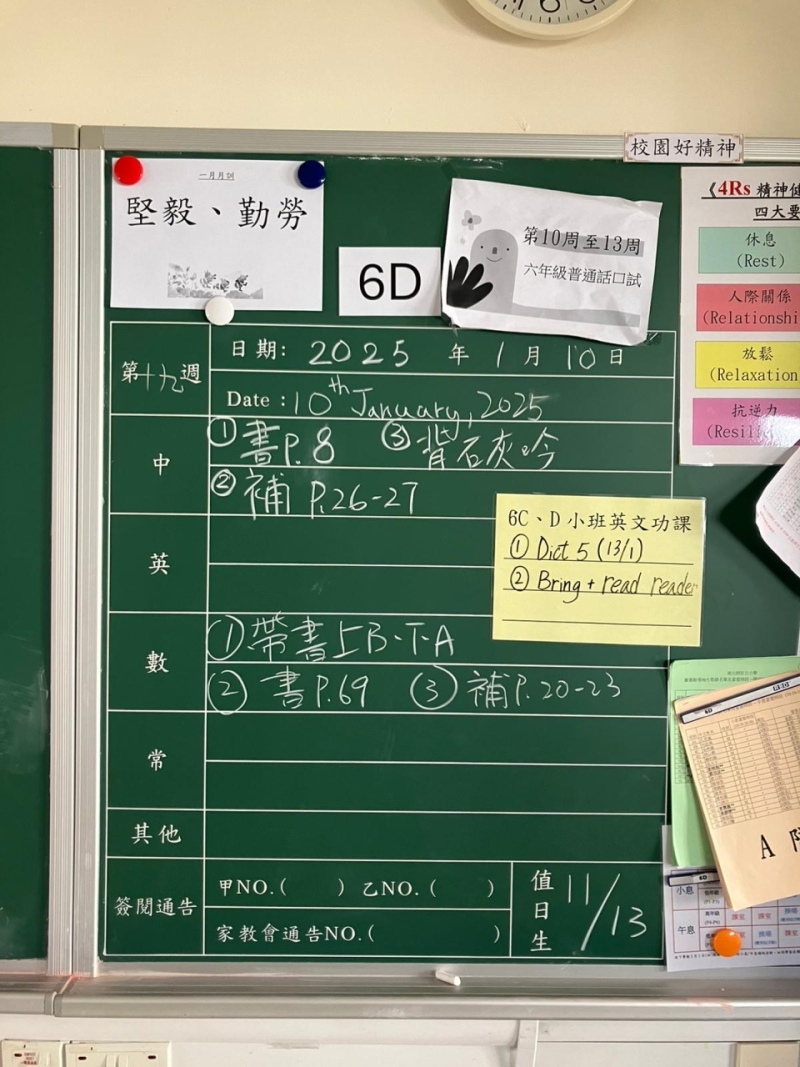 校園好精神
一月月訓
堅毅、勤勞
6D
第10周至13周
六年級普通話口試
《4Rs 精神健
四大要
休息
(Rest)
人際關係
(Relationshi
放鬆
(Relaxation
抗逆力
(Resili
第十九週
日期: 2025 年 1 月 10 日
Date : 10th January, 2025
中
① 書P.8 ③ 背石灰吟
② 補 P.26-27
英
6C、D小班英文功課
① Dict 5 (13/1)
② Bring + read reader
數
① 帶書5B、T、A
② 書P.69 ③ 補P.20-23
常
其他
簽閱通告
甲NO.( ) 乙NO.( )
家教會通告NO.( )
值日生
11/13
A
小息
午息